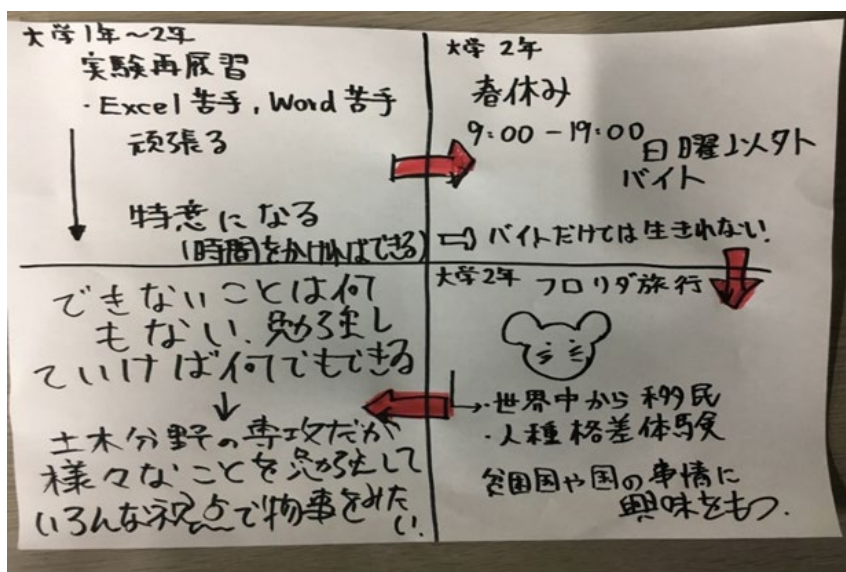 大学1年～2年
実験再履習
・Excel苦手，Word苦手
頑張る
特意になる
(時間をかければできる)
大学2年
春休み
9:00-19:00
日曜以外
バイト
⇨ バイトだけでは生きれない.
大学2年 フロリダ旅行
→・世界中から移民
・人種格差体験
貧困国や国の事情に
興味をもつ.
できないことは何
もない.勉強し
ていけば何でもできる
↓
土木分野の専攻だが
様々なことを勉強して
いろんな視点で物事をみた
い.